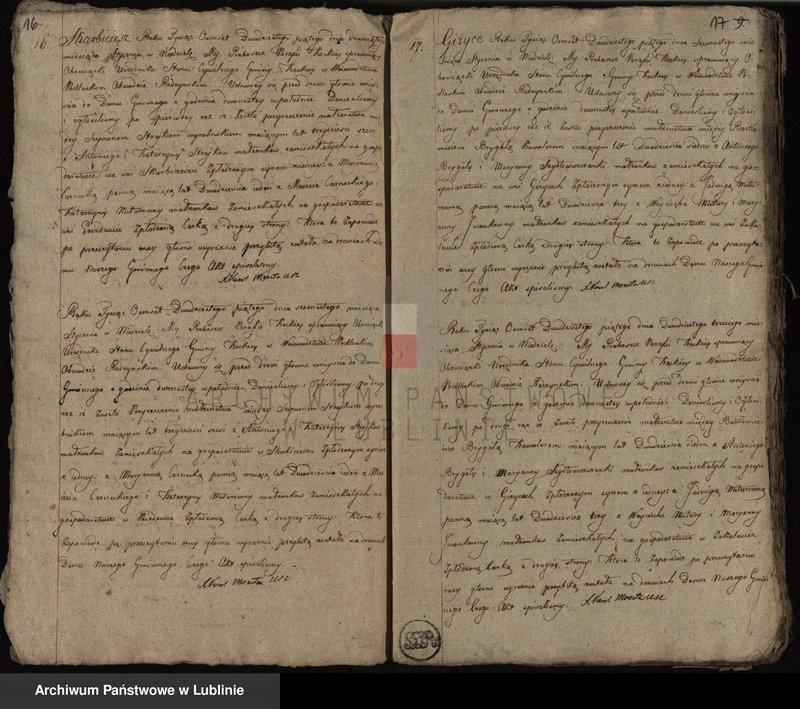 16.
16. Skarbiciesz Roku Tysiąc Ośmset Dwudziestego piątego dnia dziewiątego
miesiąca Stycznia w Niedzielę. My Proboszcz Parafii Kockiey sprawuiący
Obowiązki Urzędnika Stanu Cywilnego Gminy Kockiey w Woiewodztwie
Podlaskim Obwodzie Radzynskim. Udawszy się przed drzwi głowne weyscia
do Domu Gminnego o godzinie dwunastey wpołudnie Daniesliśmy
i ogłosiliśmy po pierwszy raz iż zaszło przyrzeczenie małżenstwa mię
dzy Szymonem Strąkiem wyrobnikiem maiącym lat trzydzieści sześć
z Antoniego i Katarzyny Strąkow małżonkow zamieszkałych na gospo
darstwie we wsi Skarbicieszu Spłodzonym synem z iedney: a Maryanną
Carnecką panną maiącą lat Dwadzieścia ieden z Macieia Carneckiego i
Katarzyny małżonkow Zamieszkałych na gospodarstwie we
wsi Spłodzoną Corką z drugiey strony: Ktora to Zapowiedz
po przeczytaniu oney głośno wyraźnie przybitą została na drzwiach Do
mu Naszego Gminnego Czego Akt spisaliśmy.
Roku Tysiąc Ośmset Dwudziestego piątego dnia szesnastego miesiąca
Stycznia w Niedzielę. My Proboszcz Parafii Kockiey sprawuiący Obowiązki
Urzędnika Stanu Cywilnego Gminy Kockiey w Woiewodztwie Podlaskim
Obwodzie Radzynskim. Udawszy się przed drzwi głowne weyscia do Domu
Gminnego o godzinie dwunastey wpołudnie Daniesliśmy i Ogłosiliśmy po drugi
raz iż Zaszło Przyrzeczenie małżenstwa między Szymonem Strąkiem wyro
bnikiem maiącym lat trzydzieści sześć z Antoniego i Katarzyny Strąkow
małżonkow Zamieszkałych na gospodarstwie w Skarbicieszu Spłodzonym synem
z iedney: a Maryanną Carnecką panną maiącą lat Dwadzieścia ieden z Ma
cieia Carneckiego i Katarzyny małżonkow Zamieszkałych na
gospodarstwie w Spłodzoną Corką z drugiey strony: Ktora to
Zapowiedz po przeczytaniu oney głośno wyraźnie przybitą została na drzwiach
Domu Naszego Gminnego Czego Akt spisaliśmy.
17
17. Giżyce Roku Tysiąc Ośmset Dwudziestego piątego dnia Szesnastego mie
siąca Stycznia w Niedzielę My Proboszcz Parafii Kockiey sprawuiący O
bowiązki Urzędnika Stanu Cywilnego Gminy Kockiey w Woiewodztwie Po
dlaskim Obwodzie Radzynskim. Udawszy się przed drzwi głowne weyscia
do Domu Gminnego o godzinie dwunastey wpołudnie. Daniesliśmy i Ogłosi
liśmy po pierwszy raz iż Zaszło przyrzeczenie małżenstwa między Bartło
mieiem Brygałą Kawalerem maiącym lat Dwadzieścia siedm z Antoniego
Brygały i Maryanny małżonkow zamieszkałych na go
spodarstwie we wsi Giżycach Spłodzonym synem z iedney: a Jadwigą
panną maiącą lat Dwadzieścia trzy z Woyciecha i Mary
anny małżonkow zamieszkałych na gospodarstwie we wsi
Spłodzoną Corką z drugiey strony: Ktora to Zapowiedz po przeczyta
niu oney głośno wyraźnie przybitą została na drzwiach Domu Naszego Gmin
nego Czego Akt spisaliśmy.
Roku Tysiąc Ośmset Dwudziestego piątego dnia Dwudziestego trzeciego mie
siąca Stycznia w Niedzielę: My Proboszcz Parafii Kockiey sprawuiący
Obowiązki Urzędnika Stanu Cywilnego Gminy Kockiey w Woiewodztwie
Podlaskim Obwodzie Radzynskim. Udawszy się przed drzwi głowne weyscia
do Domu Gminnego o godzinie dwunastey wpołudnie: Daniesliśmy i Ogłosi
liśmy po drugi raz iż Zaszło przyrzeczenie małżenstwa między Bartłomie
iem Brygałą Kawalerem maiącym lat Dwadzieścia siedm z Antoniego
Brygały i Maryanny małżonkow zamieszkałych na gospo
darstwie w Giżycach Spłodzonym synem z iedney: a Jadwigą
panną maiącą lat Dwadzieścia trzy z Woyciecha i Maryanny
małżonkow Zamieszkałych na gospodarstwie w
Spłodzoną Corką z drugiey strony: Ktora to Zapowiedz po przeczytaniu
oney głośno wyraźnie przybitą została na drzwiach Domu Naszego Gmin
nego Czego Akt spisaliśmy.
ARCHIWUM PAŃSTWOWE
W LUBLINIE
Archiwum Państwowe w Lublinie